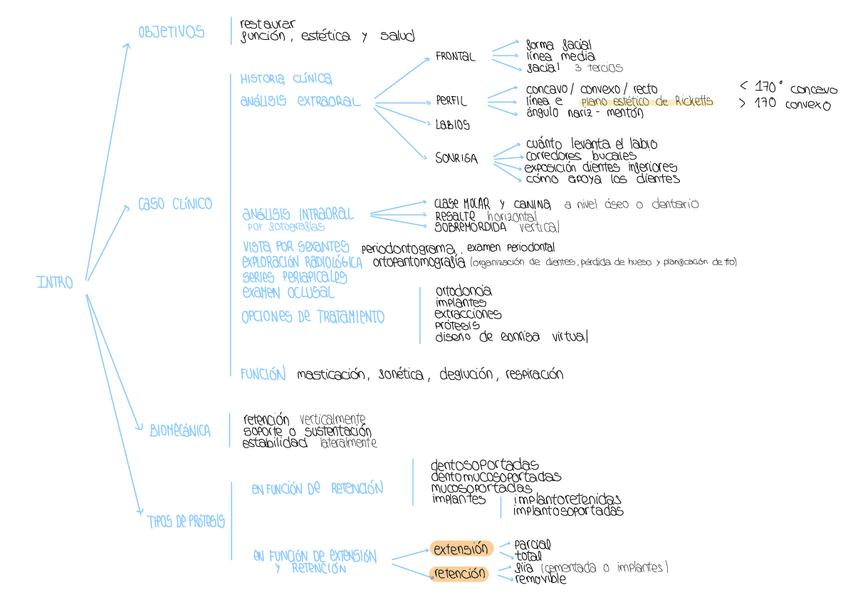 INTRO
OBJETIVOS
restaurar
función, estética y salud
CASO CLÍNICO
HISTORIA CLÍNICA
ANÁLISIS EXTRAORAL
FRONTAL
forma facial
línea media
facial 3 tercios
PERFIL
concavo / convexo / recto
línea e plano estético de Ricketts
ángulo nariz - mentón
< 170° concavo
> 170 convexo
LABIOS
SONRISA
cuánto levanta el labio
corredores bucales
exposición dientes inferiores
cómo apoya los dientes
ANÁLISIS INTRAORAL
por fotografías
CLASE MOLAR Y CANINA a nivel óseo o dentario
RESALTE horizontal
SOBREMORDIDA vertical
VISTA POR SEXTANTES periodontograma, examen periodontal
EXPLORACIÓN RADIOLÓGICA ortopantomografía (organización de dientes, pérdida de hueso y planificación de tto)
SERIES PERIAPICALES
EXAMEN OCLUSAL
OPCIONES DE TRATAMIENTO
ortodoncia
implantes
extracciones
prótesis
diseño de sonrisa virtual
FUNCIÓN masticación, fonética, deglución, respiración
BIOMECÁNICA
retención verticalmente
soporte o sustentación
estabilidad lateralmente
TIPOS DE PRÓTESIS
EN FUNCIÓN DE RETENCIÓN
dentosoportadas
dentomucosoportadas
mucosoportadas
implantes
implantoretenidas
implantosoportadas
EN FUNCIÓN DE EXTENSIÓN
Y RETENCIÓN
extensión
parcial
total
retención
fija (cementada o implantes)
removible